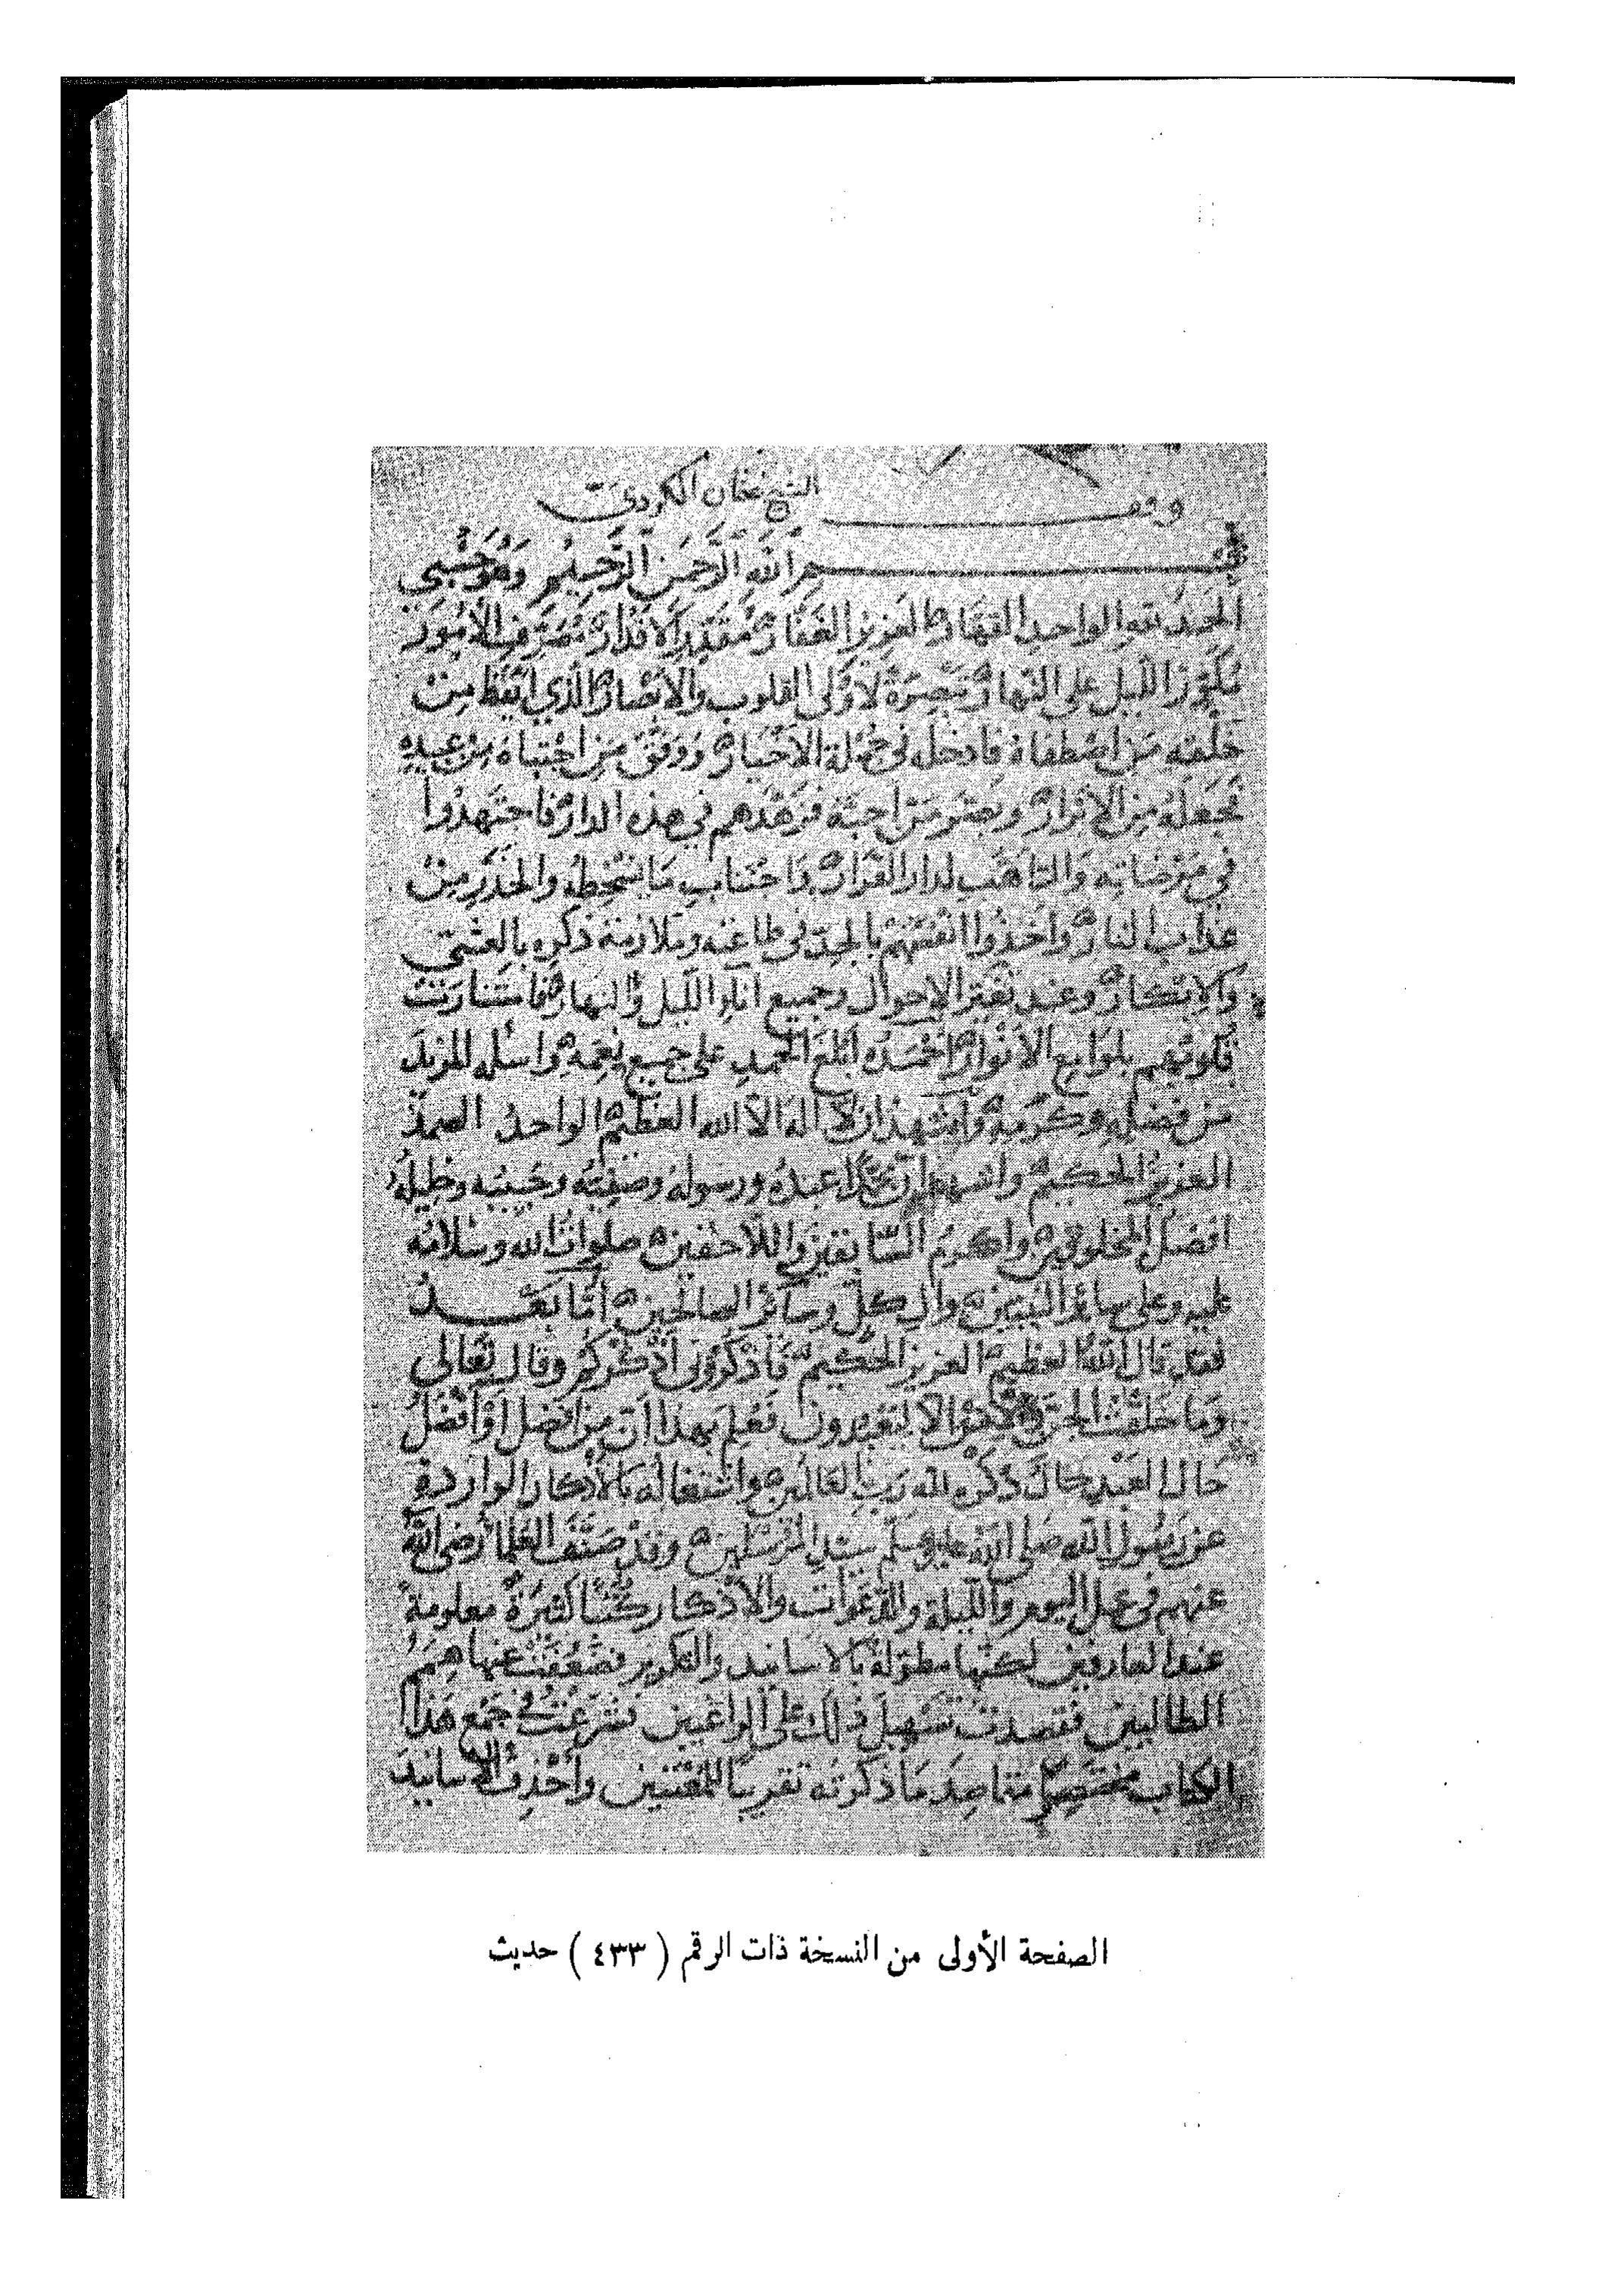 وقف الشيخ عثمان الكردي
بسم الله الرحمن الرحيم وهو حسبي
الحمد لله الواحد القهار العزيز الغفار مقدر الاقدار مصرف الامور
مكور الليل على النهار تبصرة لاولى القلوب والابصار الذي ايقظ من
خلقه من اصطفاه فادخله في جملة الاخيار ووفق من اجتباه من عبيده
فجعله من الابرار وبصر من احبه فزهدهم في هذه الدار فاجتهدوا
في مرضاته والتاهب لدار القرار واجتناب ما يسخطه والحذر من
عذاب النار واخذوا انفسهم بالجد في طاعته وملازمة ذكره بالعشي
والابكار وعند تغير الاحوال وجميع آناء الليل والنهار فاستنارت
قلوبهم بلوامع الانوار احمده ابلغ الحمد على جميع نعمه واسله المزيد
من فضله وكرمه واشهد ان لا اله الا الله العظيم الواحد الصمد
العزيز الحكيم واشهد ان محمدا عبده ورسوله وصفيه وحبيبه وخليله
افضل المخلوقين واكرم السابقين واللاحقين صلوات الله وسلامه
عليه وعلى سائر النبيين وال كل وسائر الصالحين أما بعد
فقد قال الله العظيم العزيز الحكيم فاذكروني أذكركم وقال تعالى
وما خلقت الجن والانس الا ليعبدون فعلم بهذا ان من افضل او افضل
حال العبد حال ذكره لله رب العالمين واشتغاله بالأذكار الواردة
عن رسول الله صلى الله عليه وسلم سيد المرسلين وقد صنف العلما رضي الله
عنهم في عمل اليوم والليلة والدعوات والاذكار كتبا كثيرة معلومة
عند العارفين لكنها مطولة بالاسانيد والتكرير فضعفت عنها همم
الطالبين فقصدت تسهيل ذلك على الراغبين فشرعت في جمع هذا
الكتاب مختصرا مقاصد ما ذكرته تقريبا للمعتنين وأحذف الاسانيد
الصفحة الأولى من النسخة ذات الرقم ( ٤٣٣ ) حديث